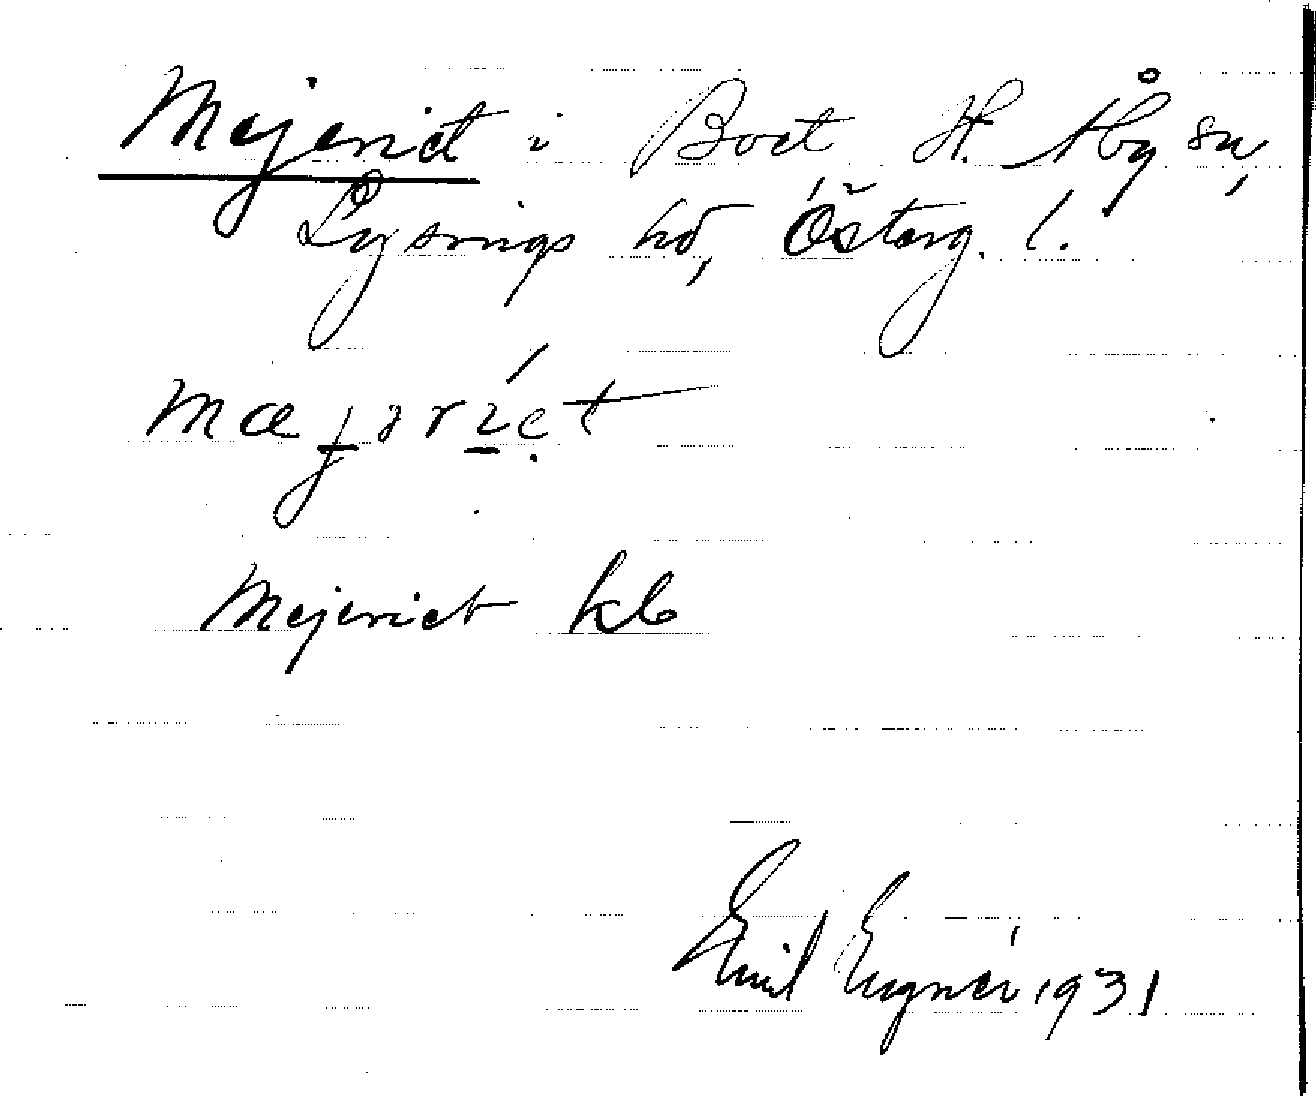 Mejeriet i Boet H. Åby sn,
Lysings hd, Österg. l.
Mejeriet kb
Emil Eugnér 1931